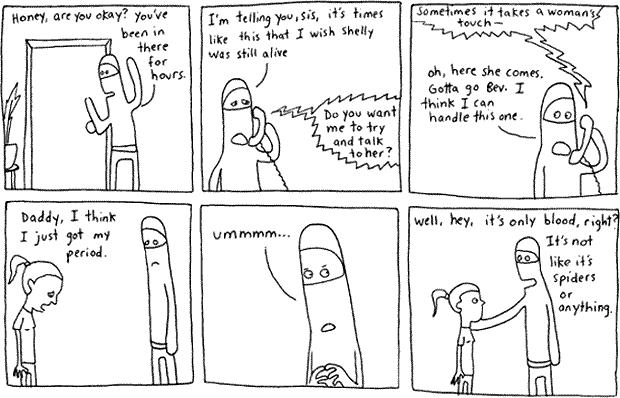 Honey, are you okay? you've
been in
there
for
hours.
I'm telling you, sis, it's times
like this that I wish Shelly
was still alive
Do you want
me to try
and talk
to her?
Sometimes it takes a woman's
touch—
oh, here she comes.
Gotta go Bev. I
think I can
handle this one.
Daddy, I think
I just got my
period.
ummmm...
well, hey, it's only blood, right?
It's not
like it's
spiders
or
anything.